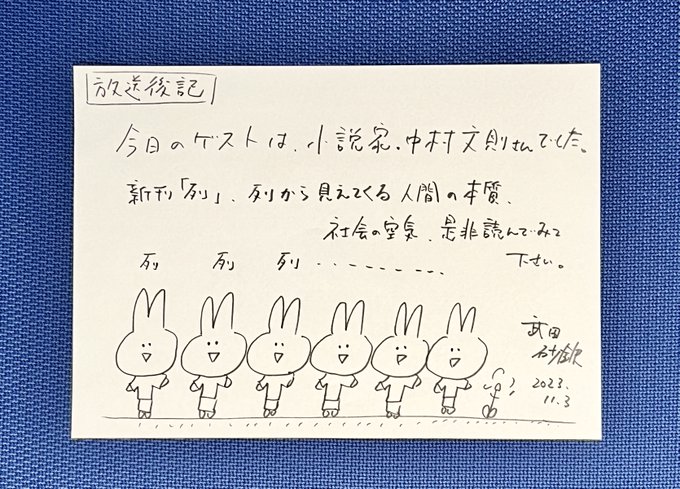 放送後記
今日のゲストは、小説家・中村文則さんでした。
新刊「列」、列から見えてくる人間の本質、
社会の空気、是非読んでみて
下さい。
列 列 列 ・・・---------
武田
砂鉄
2023.
11.3